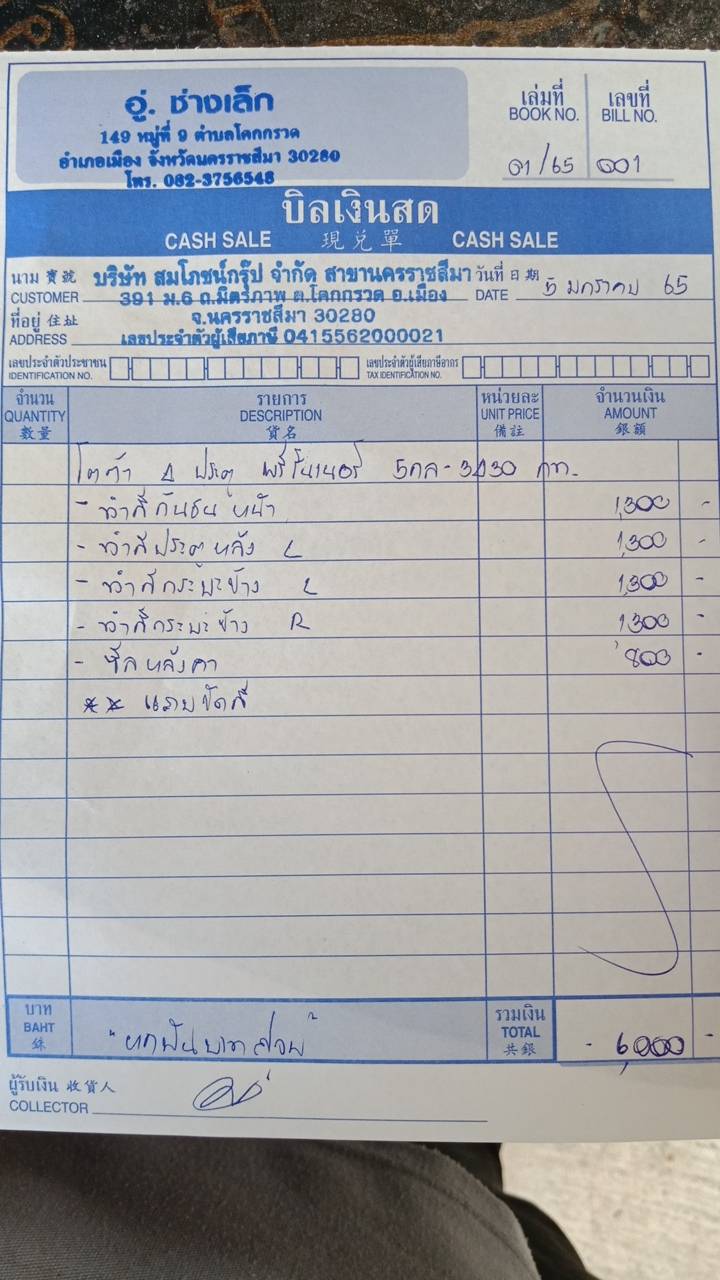 อู่. ช่างเล็ก
149 หมู่ที่ 9 ตำบลโคกกรวด
อำเภอเมือง จังหวัดนครราชสีมา 30280
โทร. 082-3756548
เล่มที่ เลขที่
BOOK NO. BILL NO.
01/65 001
บิลเงินสด
CASH SALE 現兌單 CASH SALE
นาม 寶號 บริษัท สมโภชน์กรุ๊ป จำกัด สาขานครราชสีมา วันที่ 日期
CUSTOMER 391 ม.6 ถ.มิตรภาพ ต.โคกกรวด อ.เมือง DATE 5 มกราคม 65
ที่อยู่ 住址 จ.นครราชสีมา 30280
ADDRESS เลขประจำตัวผู้เสียภาษี 0415562000021
เลขประจำตัวประชาชน เลขประจำตัวผู้เสียภาษีอากร
IDENTIFICATION NO. TAX IDENTIFICATION NO.
จำนวน รายการ หน่วยละ จำนวนเงิน
QUANTITY DESCRIPTION UNIT PRICE AMOUNT
數量 貨名 備註 銀額
4 ประตู พรีรันเนอร์ 5กล-3430 กท.
- ทำสีกันชน หน้า 1,300 -
- ทำสีประตูหลัง L 1,300 -
- ทำสีกระบะข้าง L 1,300 -
- ทำสีกระบะข้าง R 1,300 -
- ซีลหลังคา 800 -
** แถมขัดสี
บาท รวมเงิน
BAHT "หกพันบาทถ้วน" TOTAL - 6,000 -
銖 共銀
ผู้รับเงิน 收貨人
COLLECTOR